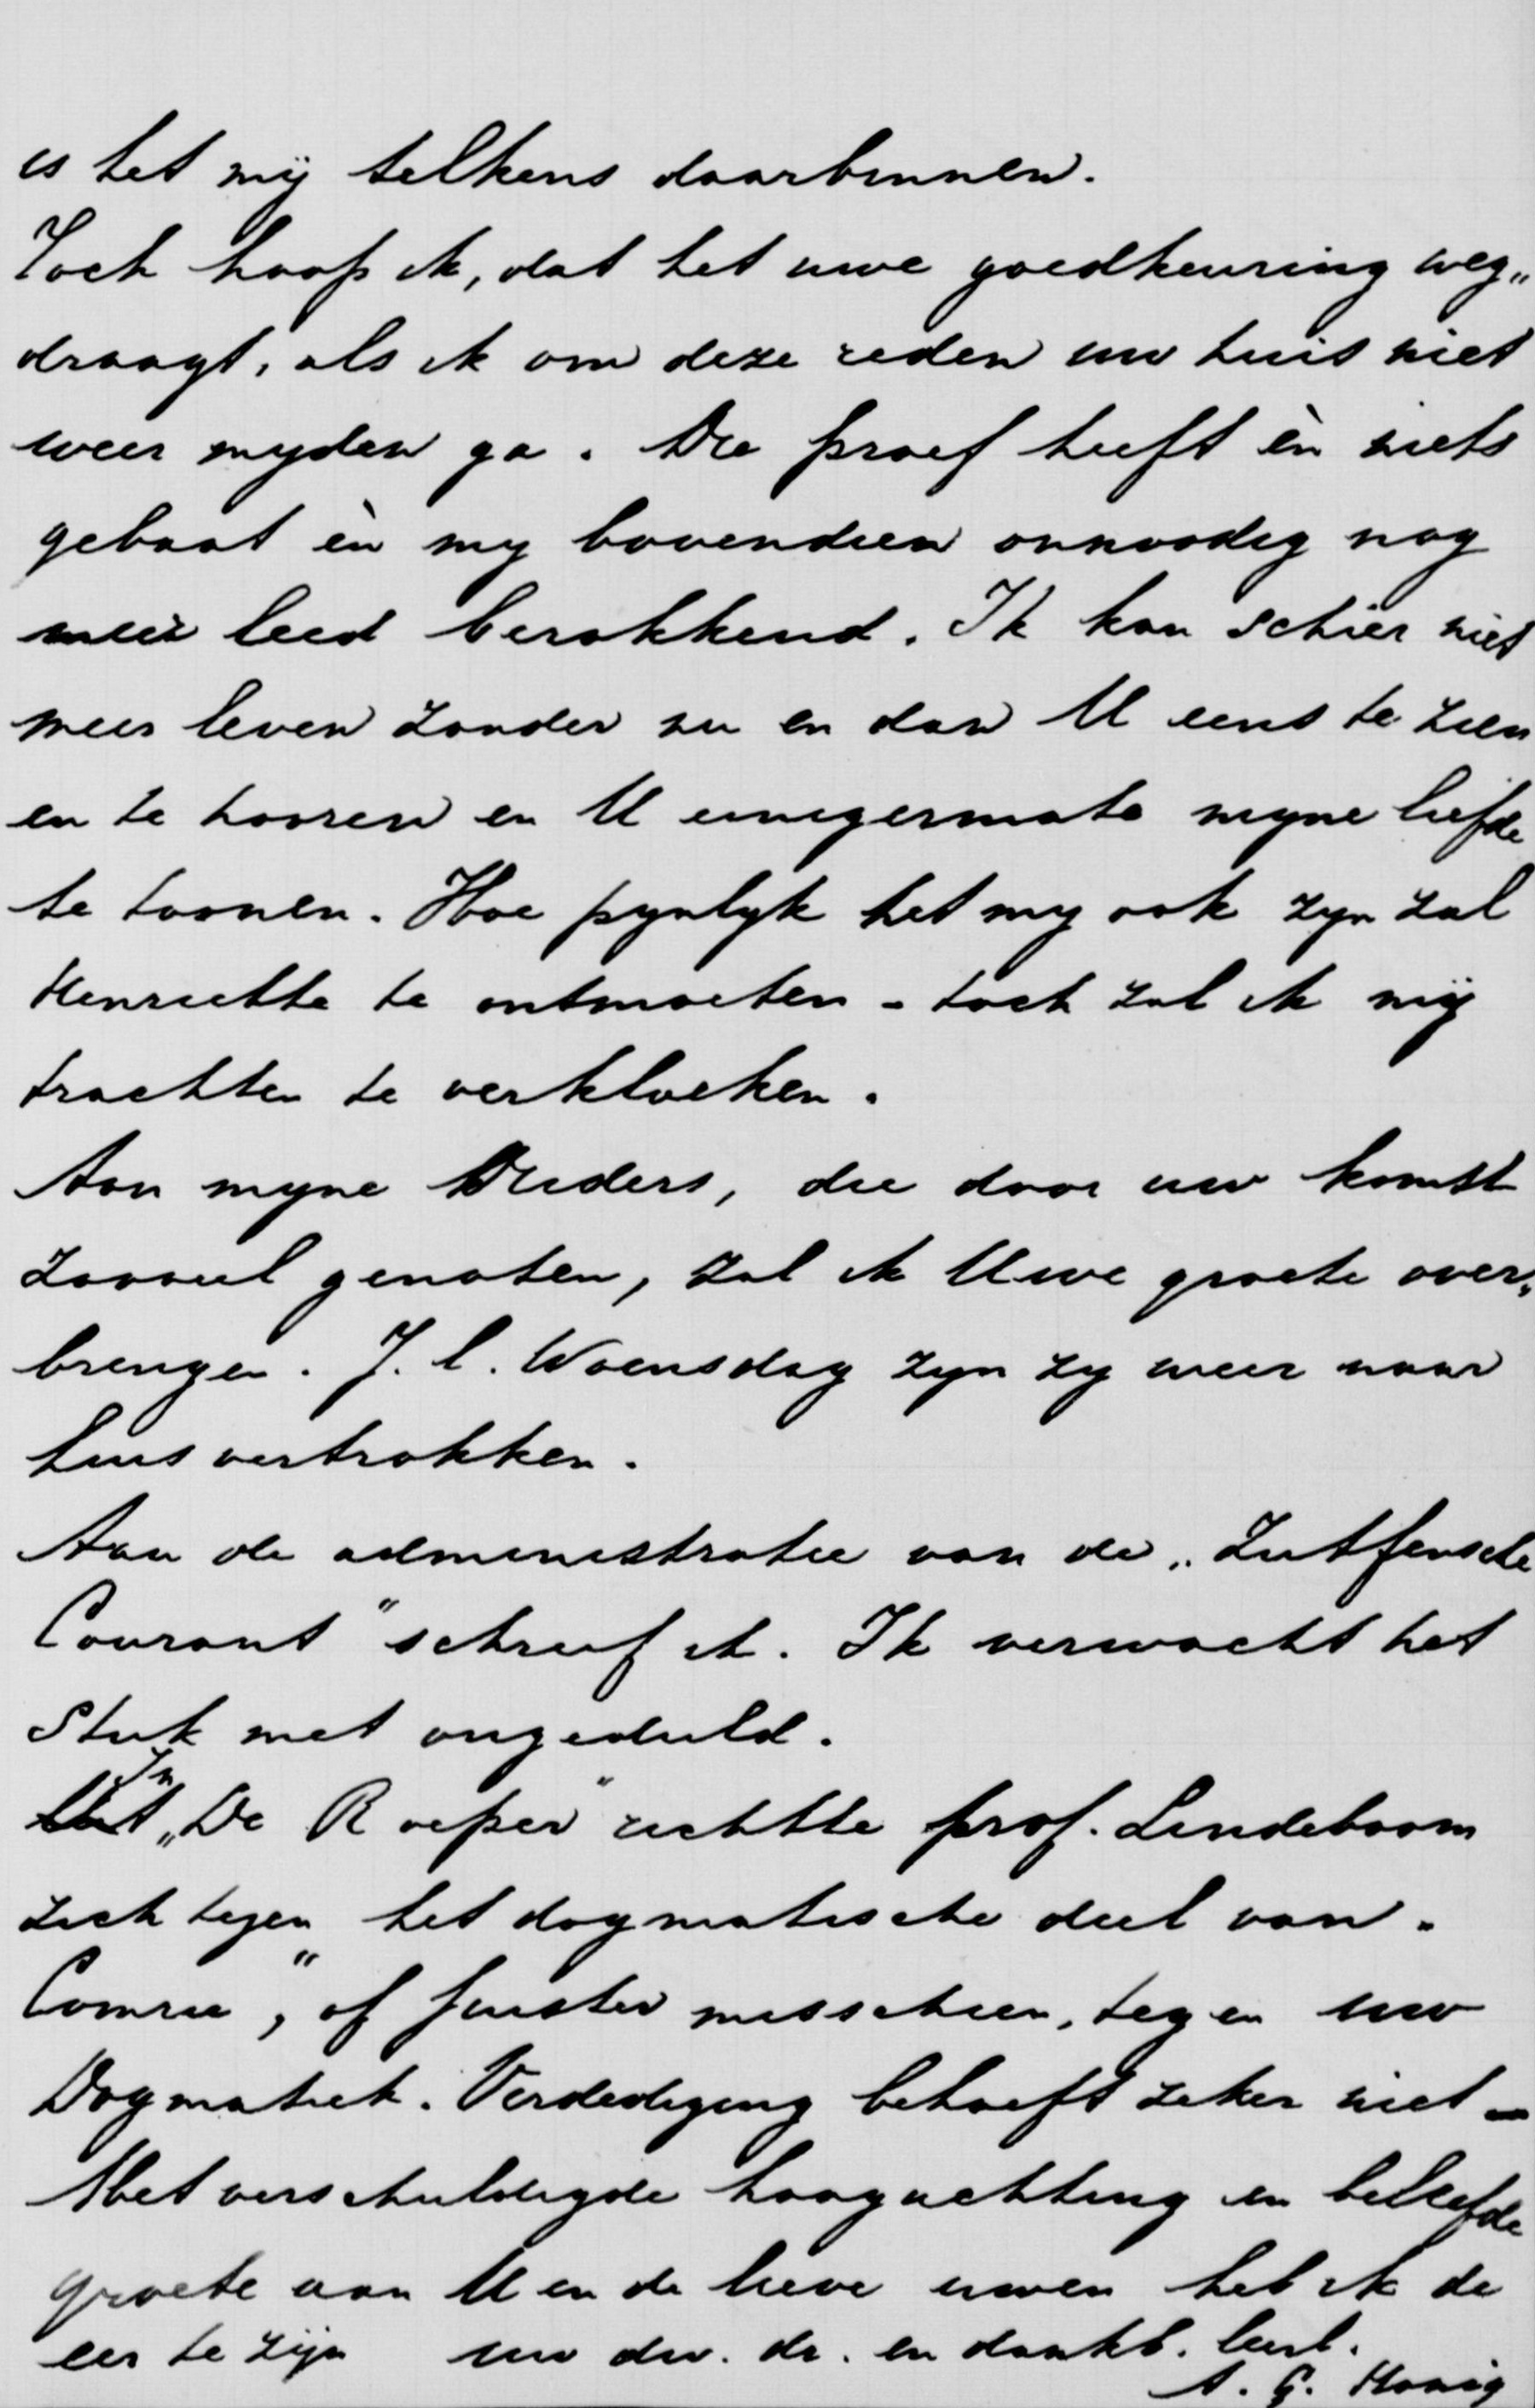 is het mij telkens daarbinnen.
Toch hoop ik, dat het uwe goedkeuring weg„
draagt, als ik om deze reden uw huis niet
weer myden ga. Die proef heeft èn niets
gebaat èn my bovendien onnoodig nog
meer leed berokkend. Ik kan schier niet
meer leven zonder nu en dan U eens te zien
en te hooren en U eenigermate myne liefde
te toonen. Hoe pynlyk het my ook zyn zal
Henriette te ontmoeten - toch zal ik mij
trachten te verkloeken.
Aan myne Ouders, die door uw komst
zooveel genoten, zal ik Uwe groete over„
brengen. J. l. Woensdag zyn zy weer naar
huis vertrokken.
Aan de administratie van de „Zutfensche
Courant" schreef ik. Ik verwacht het
stuk met ongeduld.
In „De Roeper" richtte prof. Lindeboom
zich tegen het dogmatische deel van „
Comrie", of juister misschien, tegen uw
Dogmatiek. Verdediging behoeft zeker niet -
Met verschuldigde hoogachting en beleefde
groete aan U en de lieve uwen heb ik de
eer te zijn uw dw. dr. en dankb. leerl.
A. G. Honig